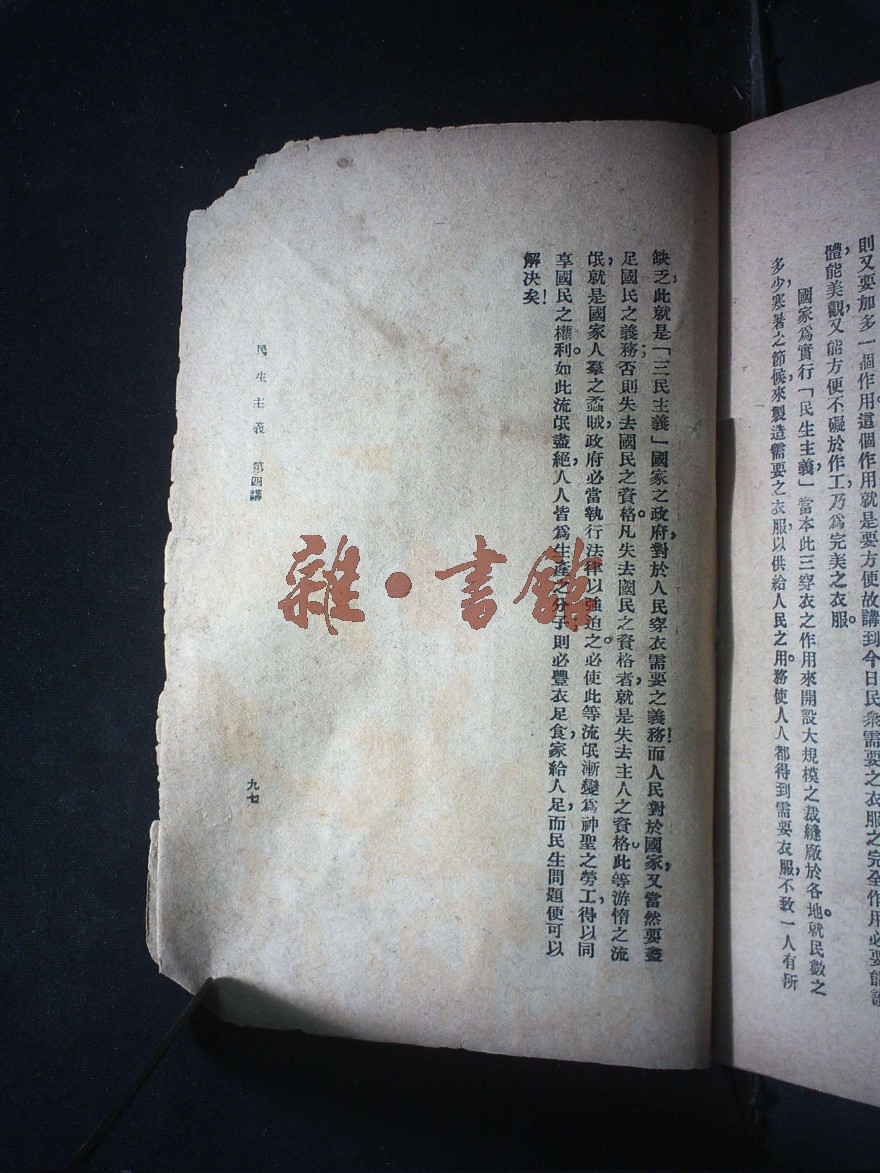 則又要加多一個作用。這個作用就是要方便故講到今日民衆需要之衣服之完全作用必要能護
體，能美觀，又能方便不礙於作工，乃爲完美之衣服。
國家爲實行「民生主義」，當本此三穿衣之作用來開設大規模之裁縫廠於各地。就民數之
多少，寒暑之節候，來製造需要之衣服，以供給人民之用。務使人人都得到需要衣服，不致一人有所
缺乏，此就是「三民主義」國家之政府，對於人民穿衣需要之義務！而人民對於國家，又當然要盡
足國民之義務；否則失去國民之資格。凡失去國民之資格者，就是失去主人之資格。此等游惰之流
氓，就是國家人羣之蟊賊，政府必當執行法律以強迫之。必使此等流氓漸變爲神聖之勞工，得以同
享國民之權利。如此流氓盡絕，人人皆爲生產之分子，則必豐衣足食，家給人足，而民生問題便可以
解決矣！
民生主義　第四講
九七
雜·書館